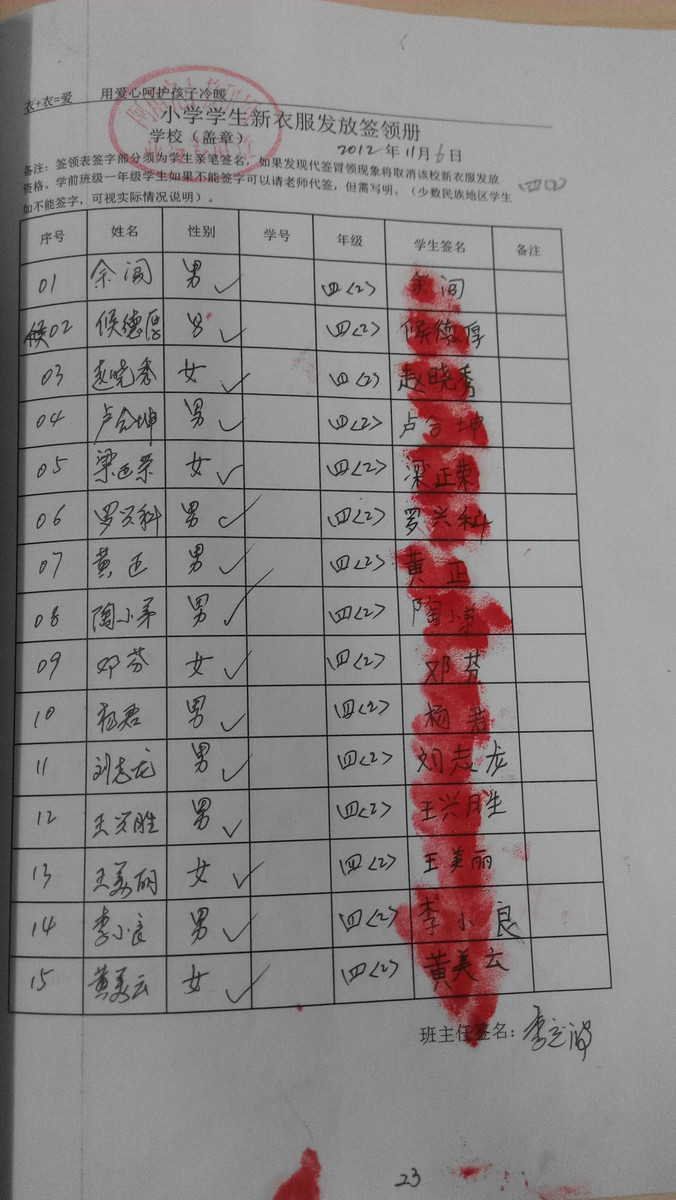 衣+衣=爱 用爱心呵护孩子冷暖
小学学生新衣服发放签领册
学校（盖章） 2012年11月6日
备注：签领表签字部分须为学生亲笔签名，如果发现代签冒领现象将取消该校新衣服发放
资格。学前班级一年级学生如果不能签字可以请老师代签，但需写明。（少数民族地区学生
如不能签字，可视实际情况说明）。
序号 姓名 性别 学号 年级 学生签名 备注
01 余阔 男 ✓ 四<2> 余阔
候02 候德厚 男 ✓ 四<2> 候德厚
03 赵晓秀 女 ✓ 四<2> 赵晓秀
04 卢合坤 男 ✓ 四<2> 卢合坤
05 梁正荣 女 ✓ 四<2> 梁正荣
06 罗兴科 男 ✓ 四<2> 罗兴科
07 黄正 男 ✓ 四<2> 黄正
08 陶小弟 男 ✓ 四<2> 陶小弟
09 邓芬 女 ✓ 四<2> 邓芬
10 杨君 男 ✓ 四<2> 杨君
11 刘志龙 男 ✓ 四<2> 刘志龙
12 王兴胜 男 ✓ 四<2> 王兴胜
13 王美丽 女 ✓ 四<2> 王美丽
14 李小良 男 ✓ 四<2> 李小良
15 黄美云 女 ✓ 四<2> 黄美云
班主任签名：
23